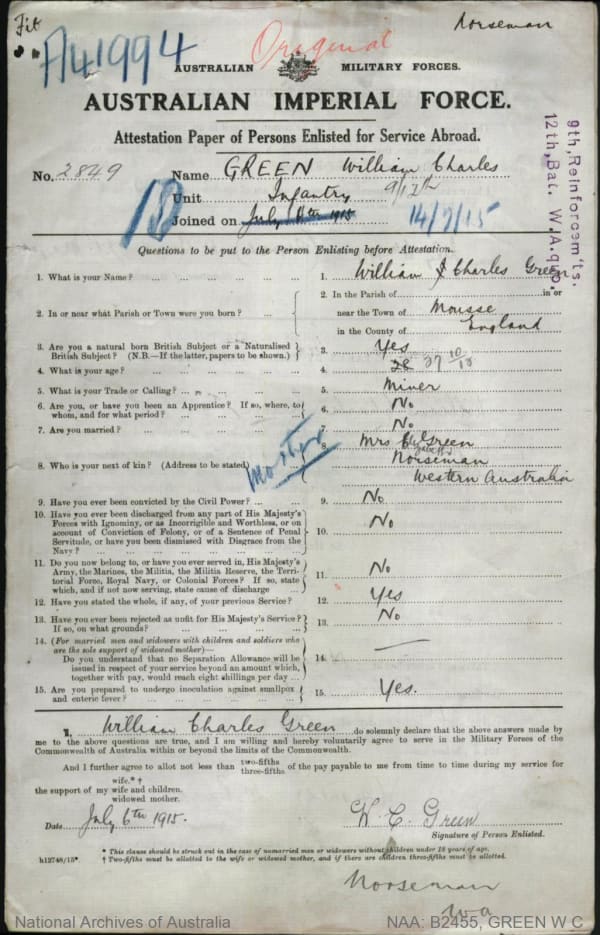 Fit
Norseman
A41994
Original
AUSTRALIAN MILITARY FORCES.
AUSTRALIAN IMPERIAL FORCE.
Attestation Paper of Persons Enlisted for Service Abroad.
9th, Reinforcem'ts.
12th, Bat. W.A.
No. 2849 Name GREEN William Charles
Unit Infantry 9/12th
Joined on July 6th 1915 14/7/15
Questions to be put to the Person Enlisting before Attestation.
1. What is your Name? ... 1. William Charles Green
2. In or near what Parish or Town were you born? ... 2. In the Parish of in or
near the Town of Mousse
in the County of England
3. Are you a natural born British Subject or a Naturalised
British Subject? (N.B.—If the latter, papers to be shown.) 3. Yes
4. What is your age? ... 4. 28 27 10/12
5. What is your Trade or Calling? ... 5. Miner
6. Are you, or have you been an Apprentice? If so, where, to
whom, and for what period? ... 6. No
7. Are you married? ... 7. No
8. Who is your next of kin? (Address to be stated) 8. Mrs Green
Mother
Norseman
Western Australia
9. Have you ever been convicted by the Civil Power? ... 9. No
10. Have you ever been discharged from any part of His Majesty's
Forces with Ignominy, or as Incorrigible and Worthless, or on
account of Conviction of Felony, or of a Sentence of Penal
Servitude, or have you been dismissed with Disgrace from the
Navy? ... 10. No
11. Do you now belong to, or have you ever served in, His Majesty's
Army, the Marines, the Militia, the Militia Reserve, the Terri-
torial Force, Royal Navy, or Colonial Forces? If so, state
which, and if not now serving, state cause of discharge ... 11. No
12. Have you stated the whole, if any, of your previous Service? 12. Yes
13. Have you ever been rejected as unfit for His Majesty's Service?
If so, on what grounds? ... 13. No
14. (For married men and widowers with children and soldiers who
are the sole support of widowed mother)—
Do you understand that no Separation Allowance will be
issued in respect of your service beyond an amount which,
together with pay, would reach eight shillings per day ... 14. —
15. Are you prepared to undergo inoculation against smallpox
and enteric fever? ... 15. Yes.
I, William Charles Green do solemnly declare that the above answers made by
me to the above questions are true, and I am willing and hereby voluntarily agree to serve in the Military Forces of the
Commonwealth of Australia within or beyond the limits of the Commonwealth.
And I further agree to allot not less than two-fifths three-fifths of the pay payable to me from time to time during my service for
wife.* †
the support of my wife and children.
widowed mother.
Date July 6th 1915. W. C. Green
Signature of Person Enlisted.
* This clause should be struck out in the case of unmarried men or widowers without children under 18 years of age.
h12748/15*. † Two-fifths must be allotted to the wife or widowed mother, and if there are children three-fifths must be allotted.
Norseman
W.A
National Archives of Australia NAA: B2455, GREEN W C